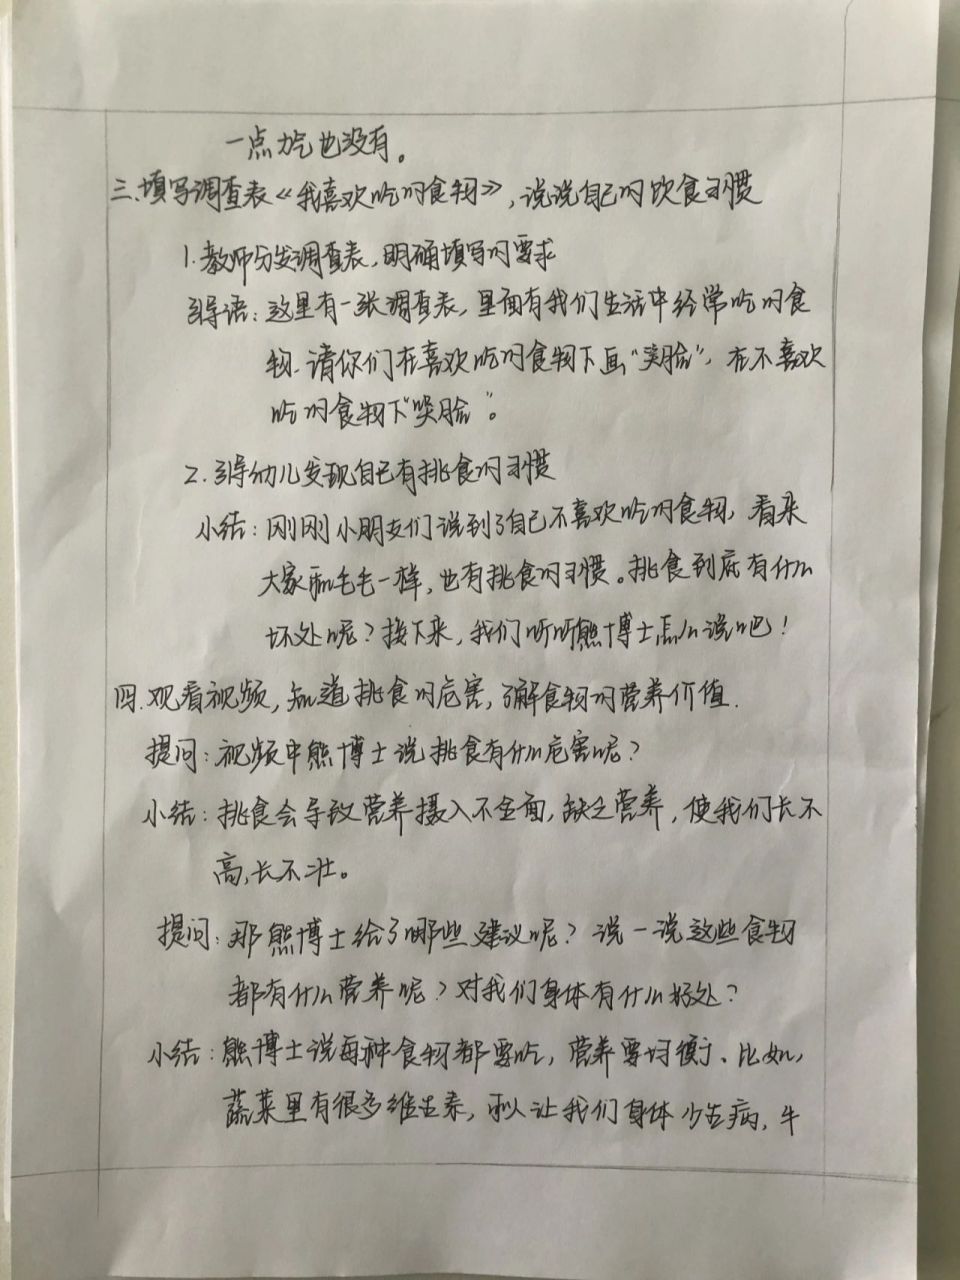 一点力气也没有。
三.填写调查表《我喜欢吃的食物》,说说自己的饮食习惯
1.教师分发调查表,明确填写的要求
引导语:这里有一张调查表,里面有我们生活中经常吃的食
物.请你们在喜欢吃的食物下画"笑脸",在不喜欢
吃的食物下"哭脸"。
2.引导幼儿发现自己有挑食的习惯
小结:刚刚小朋友们说到了自己不喜欢吃的食物,看来
大家和毛毛一样,也有挑食的习惯。挑食到底有什么
坏处呢?接下来,我们听听熊博士怎么说吧!
四.观看视频,知道挑食的危害,了解食物的营养价值.
提问:视频中熊博士说挑食有什么危害呢?
小结:挑食会导致营养摄入不全面,缺乏营养,使我们长不
高,长不壮。
提问:那熊博士给了哪些建议呢?说一说这些食物
都有什么营养呢?对我们身体有什么好处?
小结:熊博士说每种食物都要吃,营养要均衡、比如,
蔬菜里有很多维生素,可以让我们身体少生病,牛